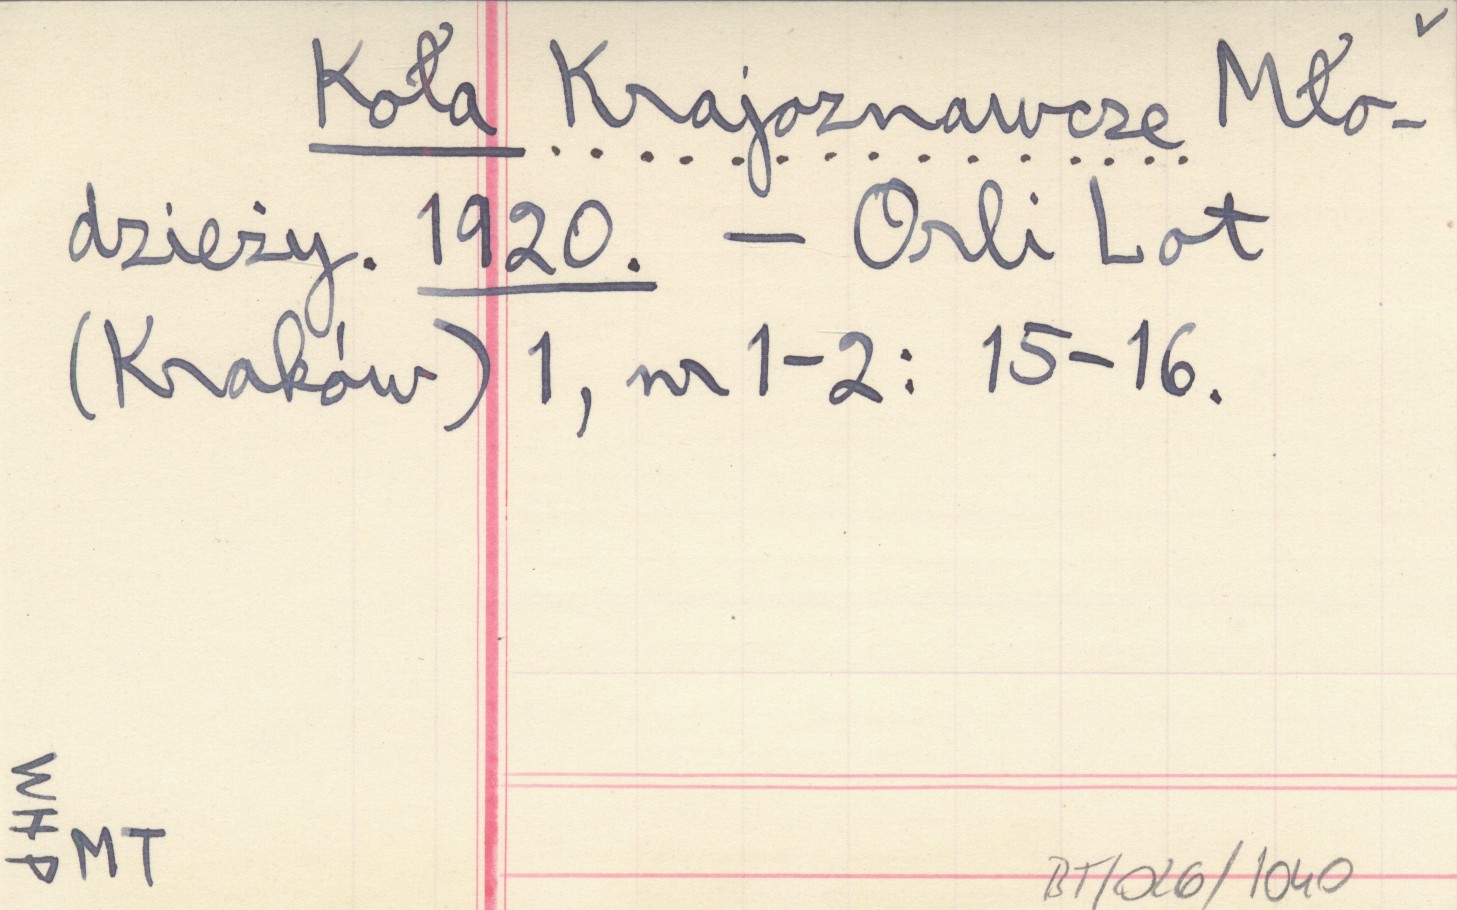 Koła Krajoznawcze Mło-
dzieży. 1920. — Orli Lot
(Kraków) 1, nr 1-2: 15-16.
WHP
MT
BT/026/1040